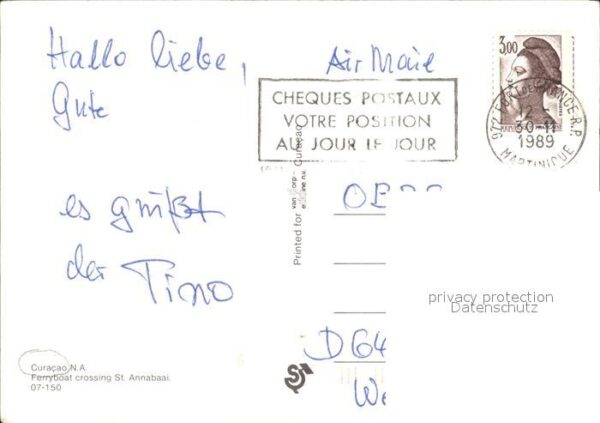 Hallo liebe,
Gute
es grüßt
der Tino
Air Maie
CHEQUES POSTAUX
VOTRE POSITION
AU JOUR LE JOUR
3,00
972 FORT DE FRANCE R.P.
30-11
1989
MARTINIQUE
Printed for
Curaçao
D 64
privacy protection
Datenschutz
Curaçao N.A.
Ferryboat crossing St. Annabaai.
07-150